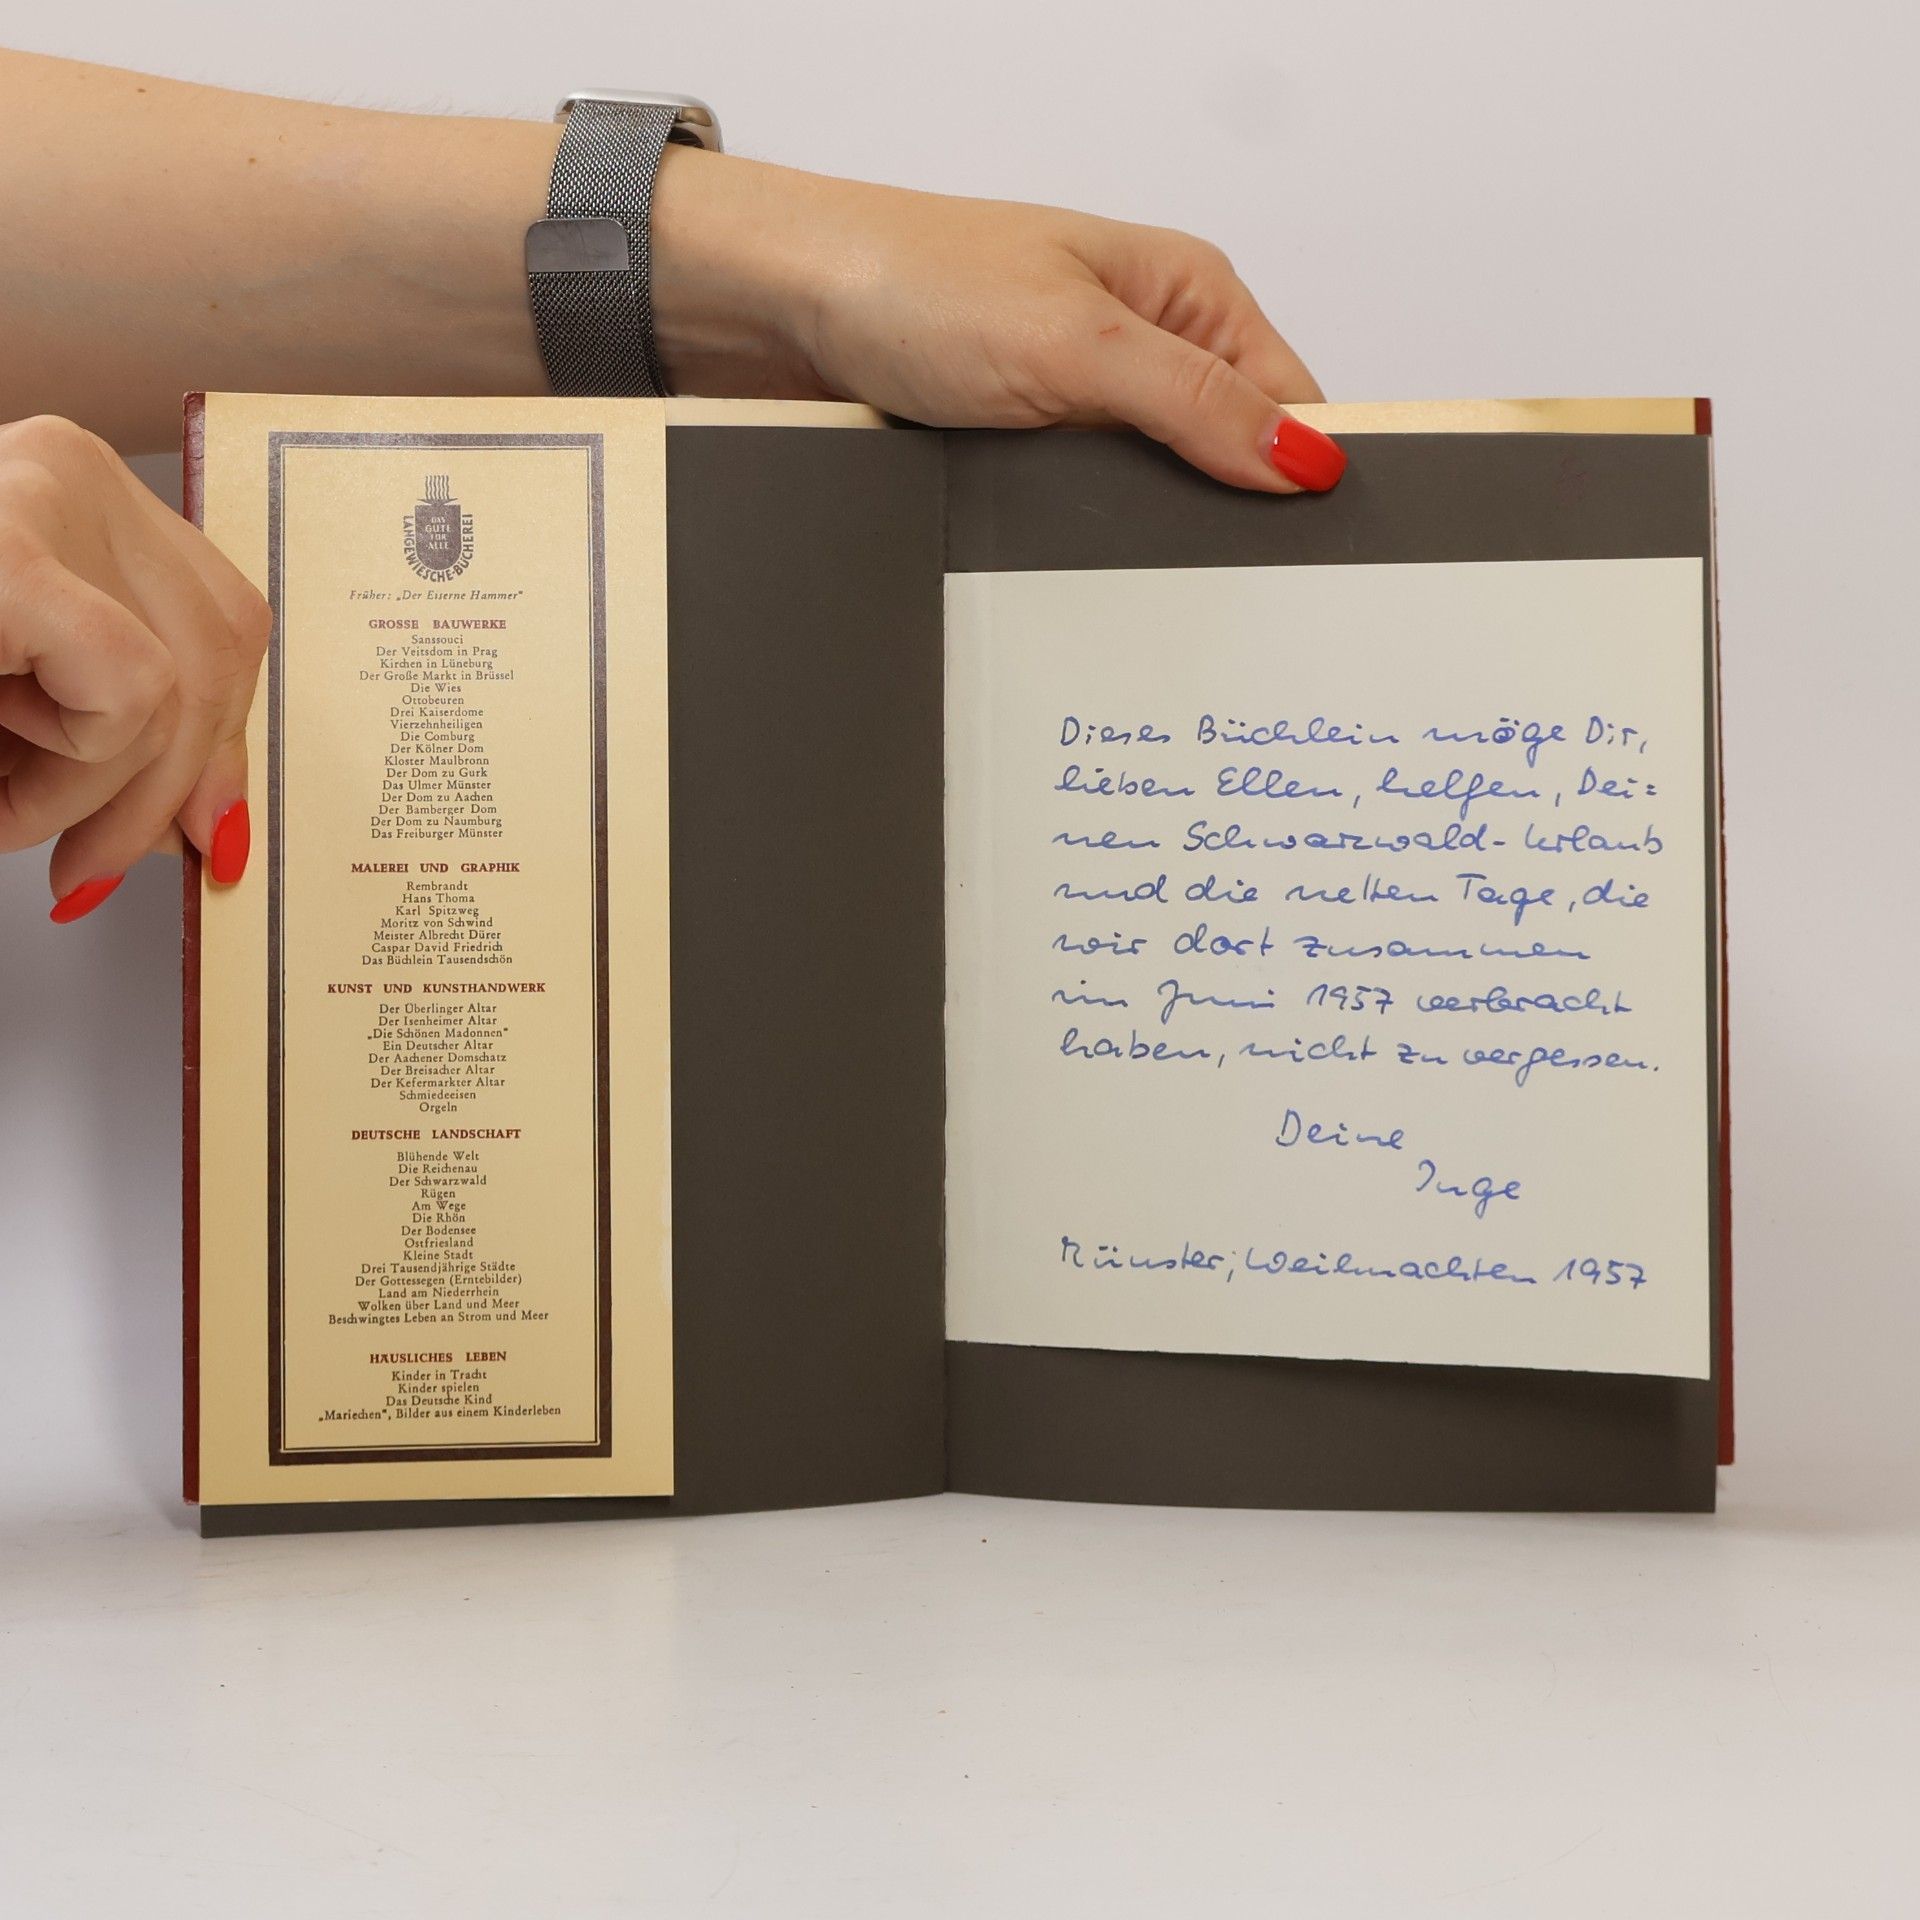 DAS
GUTE
FÜR
ALLE
LANGEWIESCHE-BÜCHEREI
Früher: „Der Eiserne Hammer"
GROSSE BAUWERKE
Sanssouci
Der Veitsdom in Prag
Kirchen in Lüneburg
Der Große Markt in Brüssel
Die Wies
Ottobeuren
Drei Kaiserdome
Vierzehnheiligen
Die Comburg
Der Kölner Dom
Kloster Maulbronn
Der Dom zu Gurk
Das Ulmer Münster
Der Dom zu Aachen
Der Bamberger Dom
Der Dom zu Naumburg
Das Freiburger Münster
MALEREI UND GRAPHIK
Rembrandt
Hans Thoma
Karl Spitzweg
Moritz von Schwind
Meister Albrecht Dürer
Caspar David Friedrich
Das Büchlein Tausendschön
KUNST UND KUNSTHANDWERK
Der Überlinger Altar
Der Isenheimer Altar
„Die Schönen Madonnen"
Ein Deutscher Altar
Der Aachener Domschatz
Der Breisacher Altar
Der Kefermarkter Altar
Schmiedeeisen
Orgeln
DEUTSCHE LANDSCHAFT
Blühende Welt
Die Reichenau
Der Schwarzwald
Rügen
Am Wege
Die Rhön
Der Bodensee
Ostfriesland
Kleine Stadt
Drei Tausendjährige Städte
Der Gottessegen (Erntebilder)
Land am Niederrhein
Wolken über Land und Meer
Beschwingtes Leben an Strom und Meer
HÄUSLICHES LEBEN
Kinder in Tracht
Kinder spielen
Das Deutsche Kind
„Mariechen", Bilder aus einem Kinderleben
Dieses Büchlein möge Dir,
lieben Ellen, helfen, Dei=
nen Schwarzwald-Urlaub
und die netten Tage, die
wir dort zusammen
im Juni 1957 verbracht
haben, nicht zu vergessen.
Deine
Inge
Münster, Weihnachten 1957